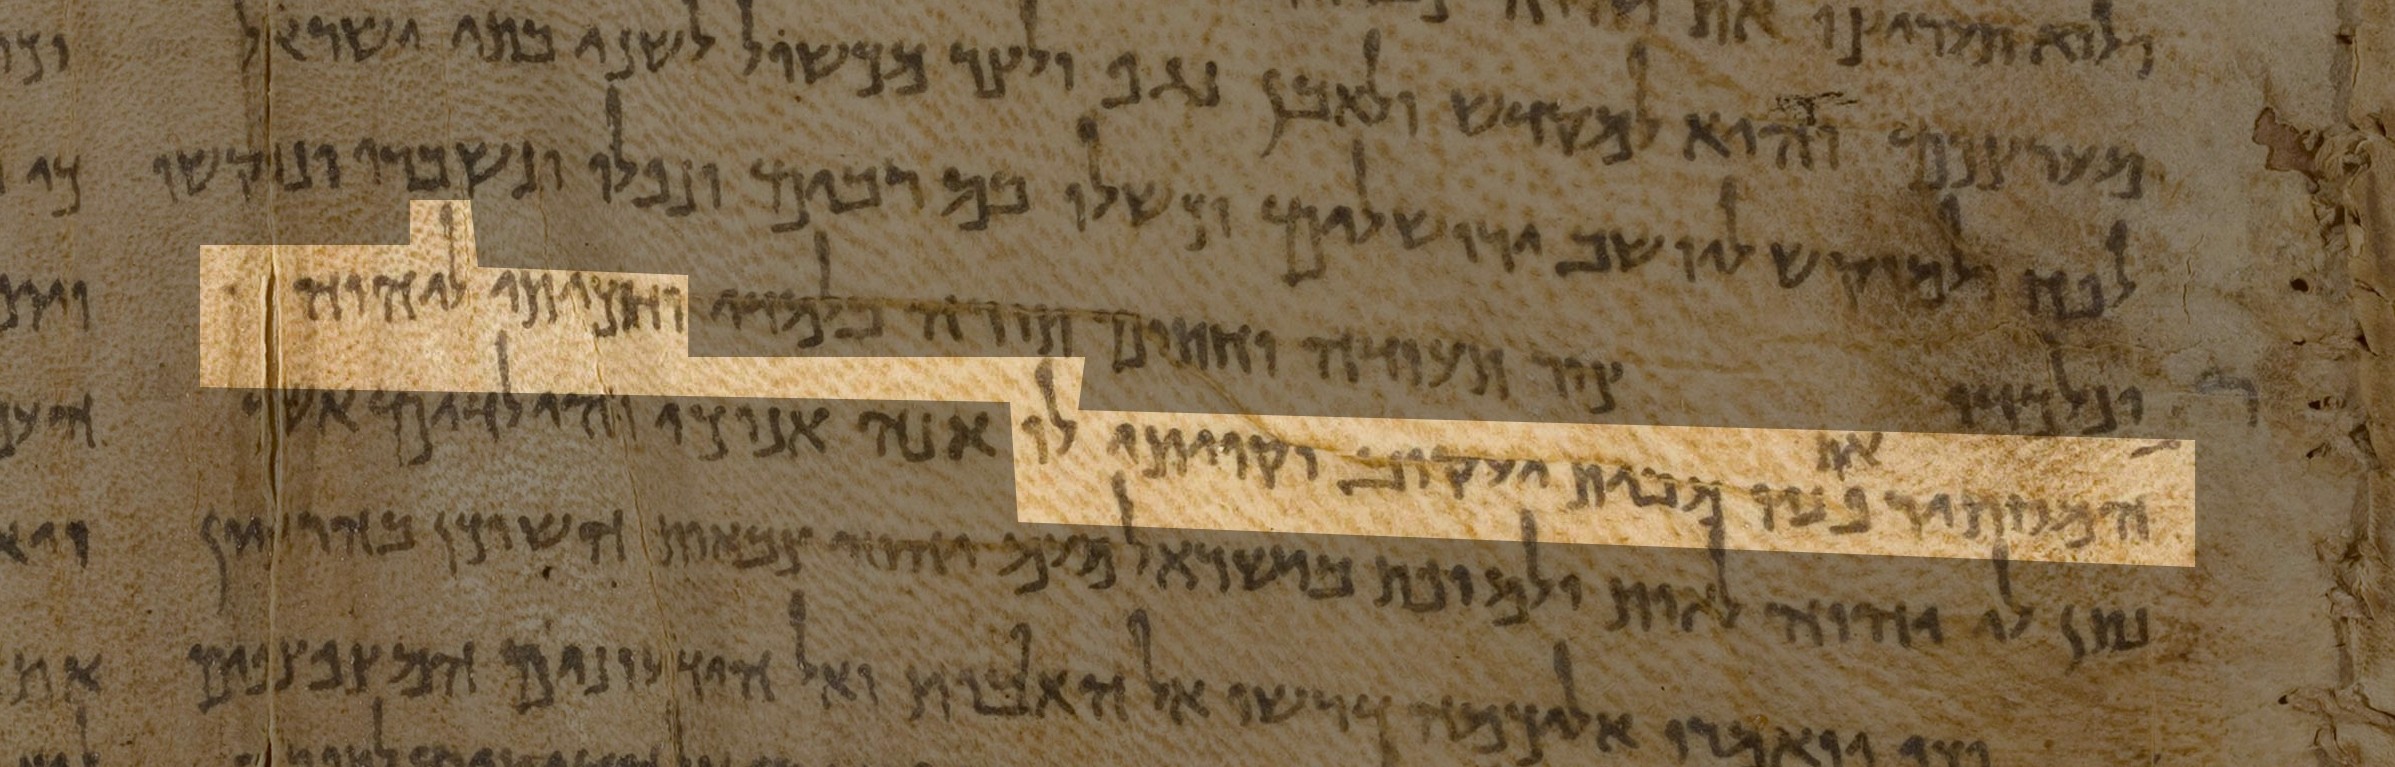 ולוא תעריצו את
מערצכם והוא למקדש ולאבן נגף ולצור מכשול לשני בתי ישראל
לפח ולמוקש ליושב ירושלים וכשלו בם רבים ונפלו ונשברו ונוקשו
ונלכדו צור תעודה וחתום תורה בלמדי וחכיתי ליהוה
המסתיר את פניו מבית יעקוב וקויתי לו הנה אנוכי והילדים אשר
נתן לי יהוה לאות ולמופת בישראל מעם יהוה צבאות השוכן בהר ציון
וכי יואמרו אליכמה דרשו אל האבות ואל הידעונים המצפצפים